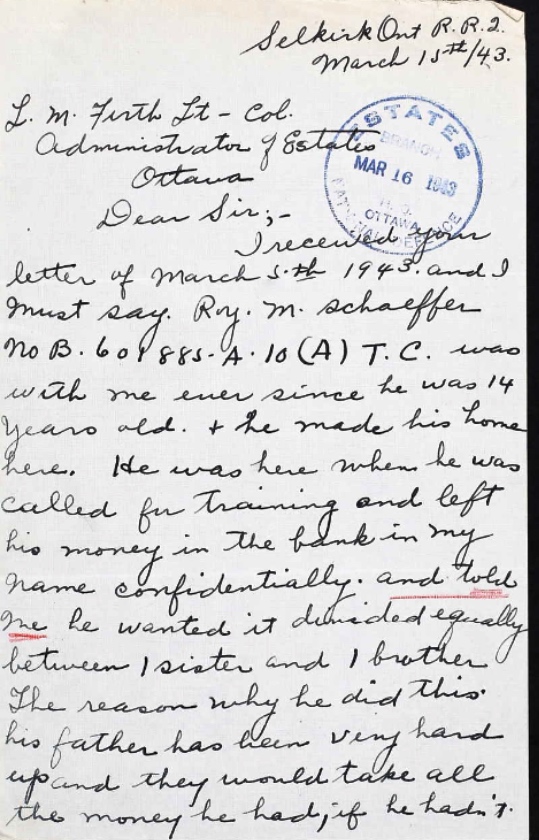 Selkirk Ont R.R.2.
March 15th/43.
L. M. Firth Lt-Col.
Administrator of Estates
Ottawa
ESTATES
BRANCH
MAR 16 1943
OTTAWA
NATIONAL DEFENCE
Dear Sir;-
I received your
letter of March 5th 1943. and I
Must say. Roy. M. Schaeffer
No B. 601885-A.10(A) T.C. was
with me ever since he was 14
Years old. + he made his home
here. He was here when he was
called for training and left
his money in the bank in my
name confidentially. and told
me he wanted it divided equally
between 1 sister and 1 brother
The reason why he did this.
his father has been very hard
up and they would take all
the money he had, if he hadn't.